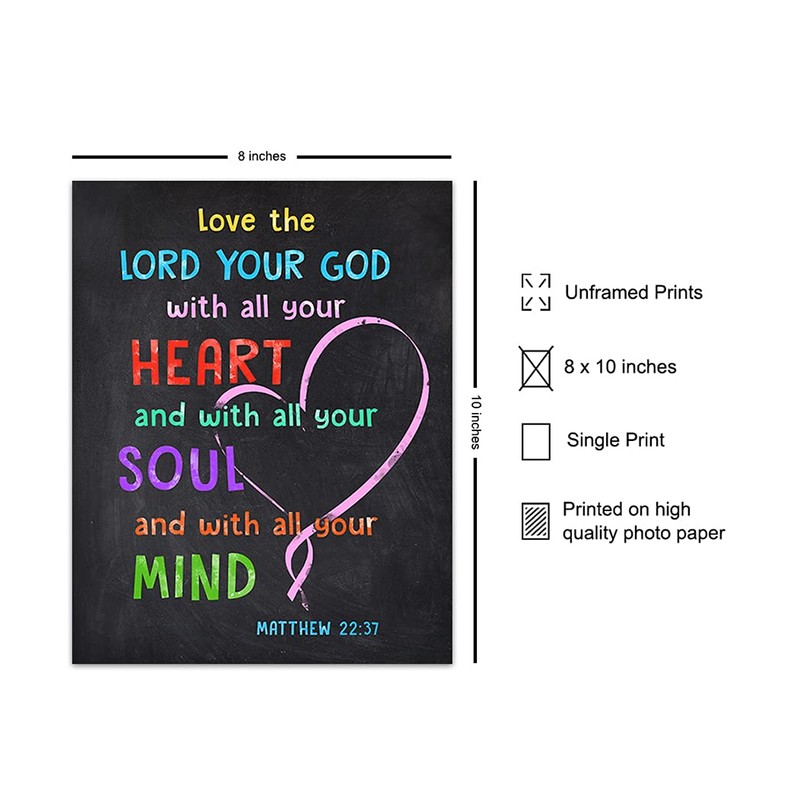 8 inches
Love the
LORD YOUR GOD
with all your
HEART
and with all your
SOUL
and with all your
MIND
MATTHEW 22:37
10 inches
Unframed Prints
8 x 10 inches
Single Print
Printed on high
quality photo paper